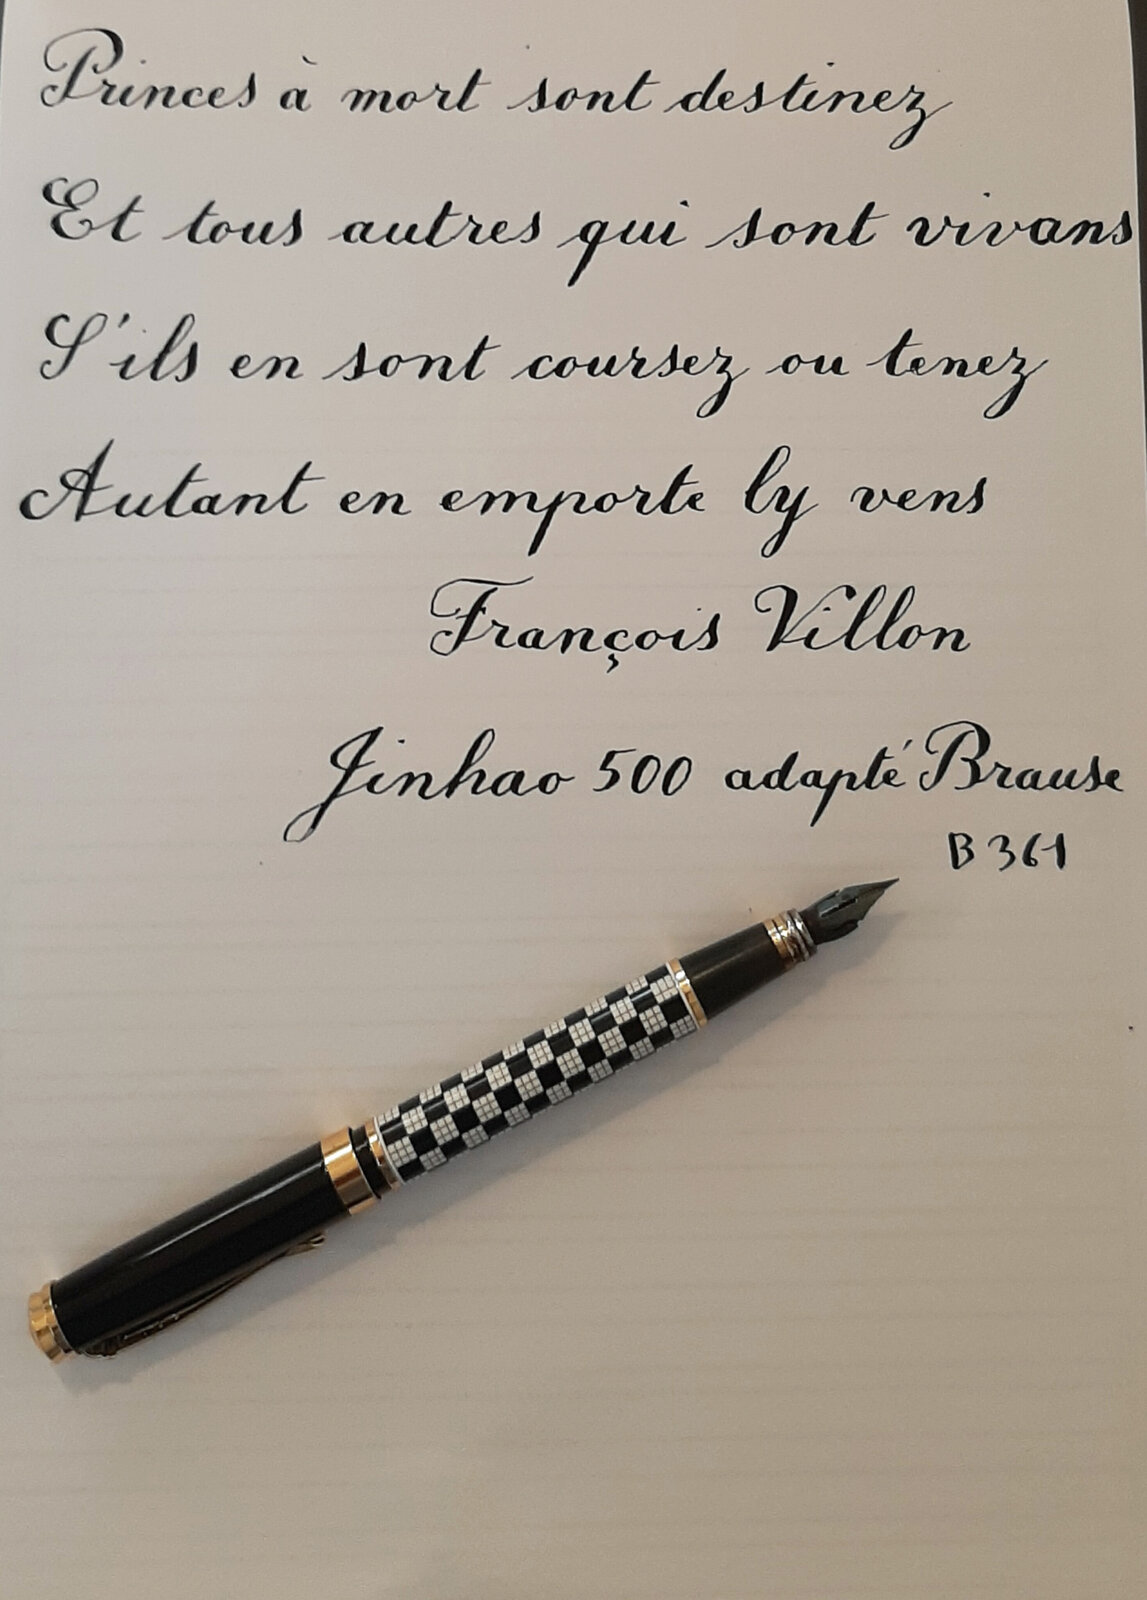 Princes à mort sont destinez
Et tous autres qui sont vivans
S'ils en sont coursez ou tenez
Autant en emporte ly vens
François Villon
Jinhao 500 adapté Brause
B 361